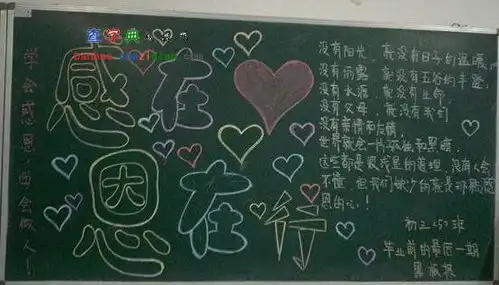 查字典
学会感恩,学会做人!
感在
恩在行
没有阳光,就没有日子的温暖,
没有雨露,就没有五谷的丰登,
没有水源,就没有生命,
没有父母,就没有我们
没有亲情和友情,
世界就会一片孤独和黑暗,
这些都是浅显的道理,没有人会
不懂,但我们缺少的就是那颗感
恩的心!
初三<5>班
毕业前的最后一期
黑板报